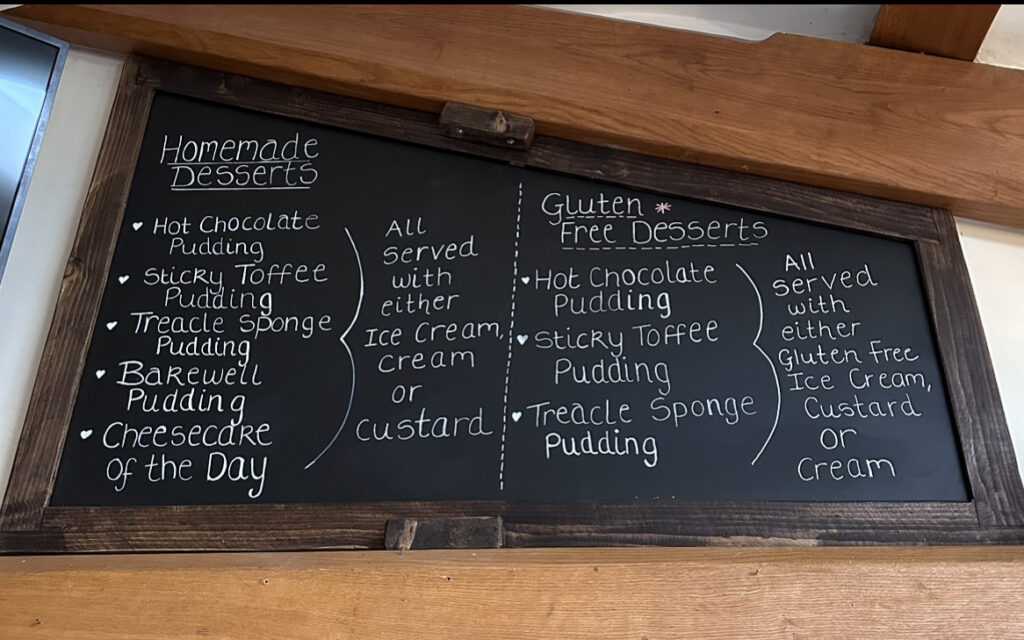 Homemade
Desserts
Hot Chocolate
Pudding
Sticky Toffee
Pudding
Treacle Sponge
Pudding
Bakewell
Pudding
Cheesecake
of the Day
All
served
with
either
Ice Cream,
cream
or
custard
Gluten *
Free Desserts
Hot Chocolate
Pudding
Sticky Toffee
Pudding
Treacle Sponge
Pudding
All
served
with
either
Gluten Free
Ice Cream,
Custard
or
Cream